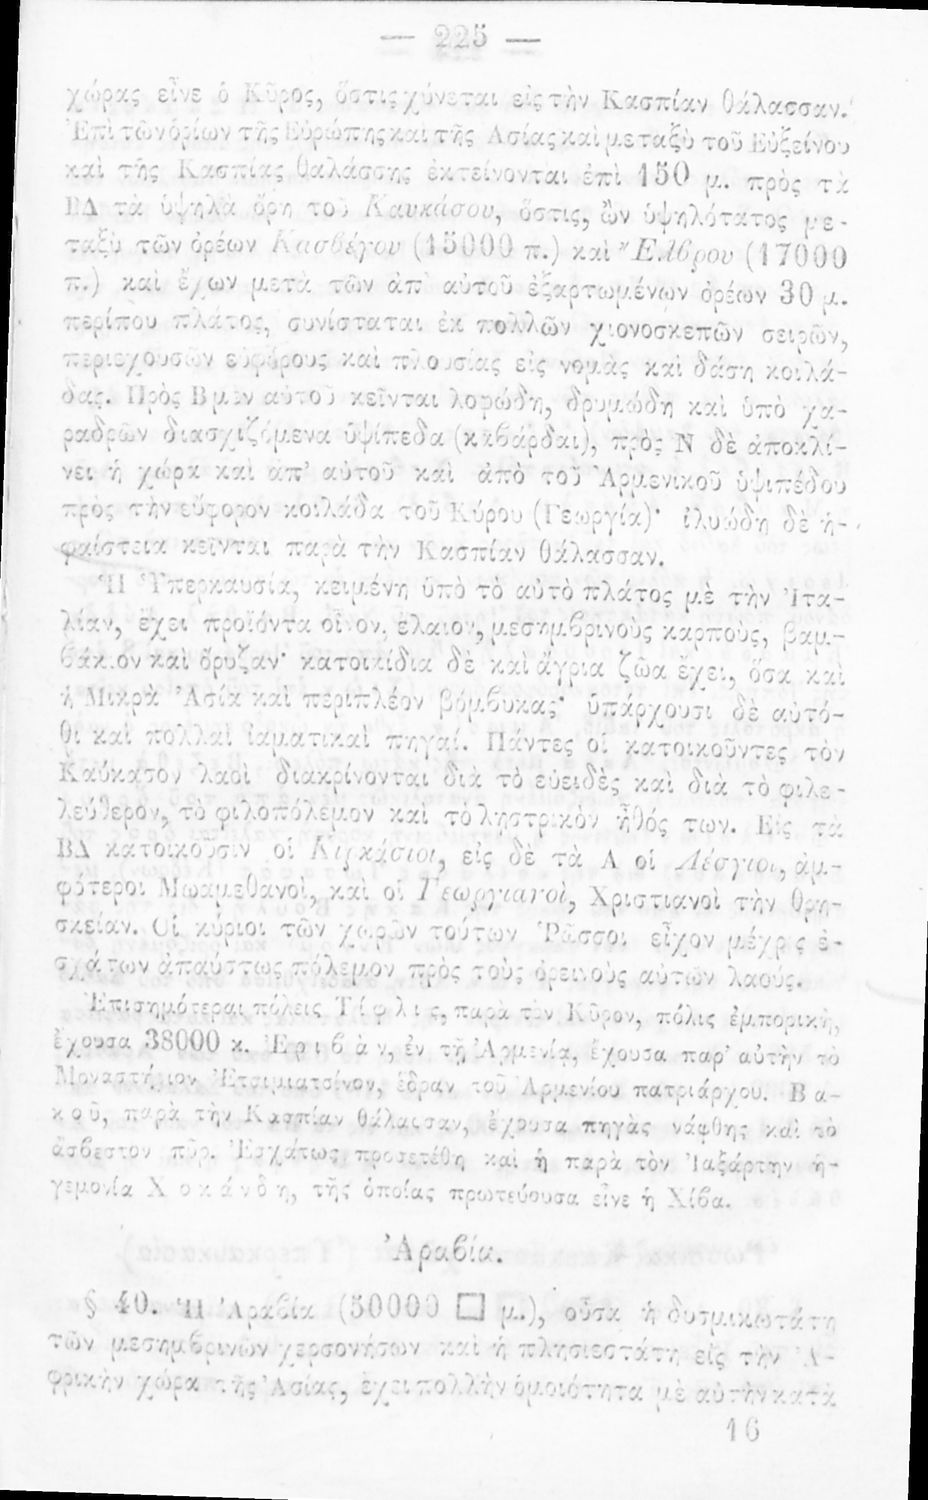 — 225 —
χώρας εἶνε ὁ Κῦρος, ὅστις χύνεται εἰς τὴν Κασπίαν θάλασσαν.
Ἐπὶ τῶν ὁρίων τῆς Εὐρώπης καὶ τῆς Ἀσίας καὶ μεταξὺ τοῦ Εὐξείνου
καὶ τῆς Κασπίας θαλάσσης ἐκτείνονται ἐπὶ 150 μ. πρὸς τὰ
ΒΔ τὰ ὑψηλὰ ὄρη τοῦ Καυκάσου, ὅστις, ὢν ὑψηλότατος με-
ταξὺ τῶν ὀρέων Κασβέκου (15000 π.) καὶ Ἔλβρου (17000
π.) καὶ ἔχων μετὰ τῶν ἀπ' αὐτοῦ ἐξαρτωμένων ὀρέων 30 μ.
περίπου πλάτος, συνίσταται ἐκ πολλῶν χιονοσκεπῶν σειρῶν,
περιεχουσῶν εὐφόρους καὶ πλουσίας εἰς νομὰς καὶ δάση κοιλά-
δας. Πρὸς Β μὲν αὐτοῦ κεῖνται λοφώδη, δρυμώδη καὶ ὑπὸ χα-
ραδρῶν διασχιζόμενα ὑψίπεδα (καβάρδαι), πρὸς Ν δὲ ἀποκλί-
νει ἡ χώρα καὶ ἀπ' αὐτοῦ καὶ ἀπὸ τοῦ Ἀρμενικοῦ ὑψιπέδου
πρὸς τὴν εὔφορον κοιλάδα τοῦ Κύρου (Γεωργία)· ἰλυώδη δὲ ἡ-
φαίστεια κεῖνται παρὰ τὴν Κασπίαν θάλασσαν.
Ἡ Ὑπερκαυσία, κειμένη ὑπὸ τὸ αὐτὸ πλάτος μὲ τὴν Ἰτα-
λίαν, ἔχει προϊόντα οἶνον, ἔλαιον, μεσημβρινοὺς καρπούς, βαμ-
βάκιον καὶ ὄρυζαν· κατοικίδια δὲ καὶ ἄγρια ζῶα ἔχει, ὅσα καὶ
ἡ Μικρὰ Ἀσία καὶ περιπλέον βόμβυκας· ὑπάρχουσι δὲ αὐτό-
θι καὶ πολλαὶ ἰαματικαὶ πηγαί. Πάντες οἱ κατοικοῦντες τὸν
Καύκασον λαοὶ διακρίνονται διὰ τὸ εὐειδὲς καὶ διὰ τὸ φιλε-
λεύθερον, τὸ φιλοπόλεμον καὶ τὸ ληστρικὸν ἦθός των. Εἰς τὰ
ΒΔ κατοικοῦσιν οἱ Κιρκάσιοι, εἰς δὲ τὰ Α οἱ Λέσγιοι, ἀμ-
φότεροι Μωαμεθανοί, καὶ οἱ Γεωργιανοί, Χριστιανοὶ τὴν θρη-
σκείαν. Οἱ κύριοι τῶν χωρῶν τούτων Ῥῶσσοι εἶχον μέχρις ἐ-
σχάτων ἀπαύστως πόλεμον πρὸς τοὺς ὀρεινοὺς αὐτῶν λαούς.
Ἐπισημότεραι πόλεις Τίφλις, παρὰ τὸν Κῦρον, πόλις ἐμπορική,
ἔχουσα 38000 κ. Ἐριβάν, ἐν τῇ Ἀρμενίᾳ, ἔχουσα παρ' αὐτὴν τὸ
Μοναστήριον Ἐτσιμιατσίνον, ἕδραν τοῦ Ἀρμενίου πατριάρχου. Βα-
κοῦ, παρὰ τὴν Κασπίαν θάλασσαν, ἔχουσα πηγὰς νάφθης καὶ τὸ
ἄσβεστον πῦρ. Ἐσχάτως προσετέθη καὶ ἡ παρὰ τὸν Ἰαξάρτην ἡ-
γεμονία Χοκάνδη, τῆς ὁποίας πρωτεύουσα εἶνε ἡ Χίβα.
Ἀραβία.
§ 40. Ἡ Ἀραβία (50000 □ μ.), οὖσα ἡ δυτμικωτάτη
τῶν μεσημβρινῶν χερσονήσων καὶ ἡ πλησιεστάτη εἰς τὴν Ἀ-
φρικὴν χώρα τῆς Ἀσίας, ἔχει πολλὴν ὁμοιότητα μὲ αὐτὴν κατὰ
16